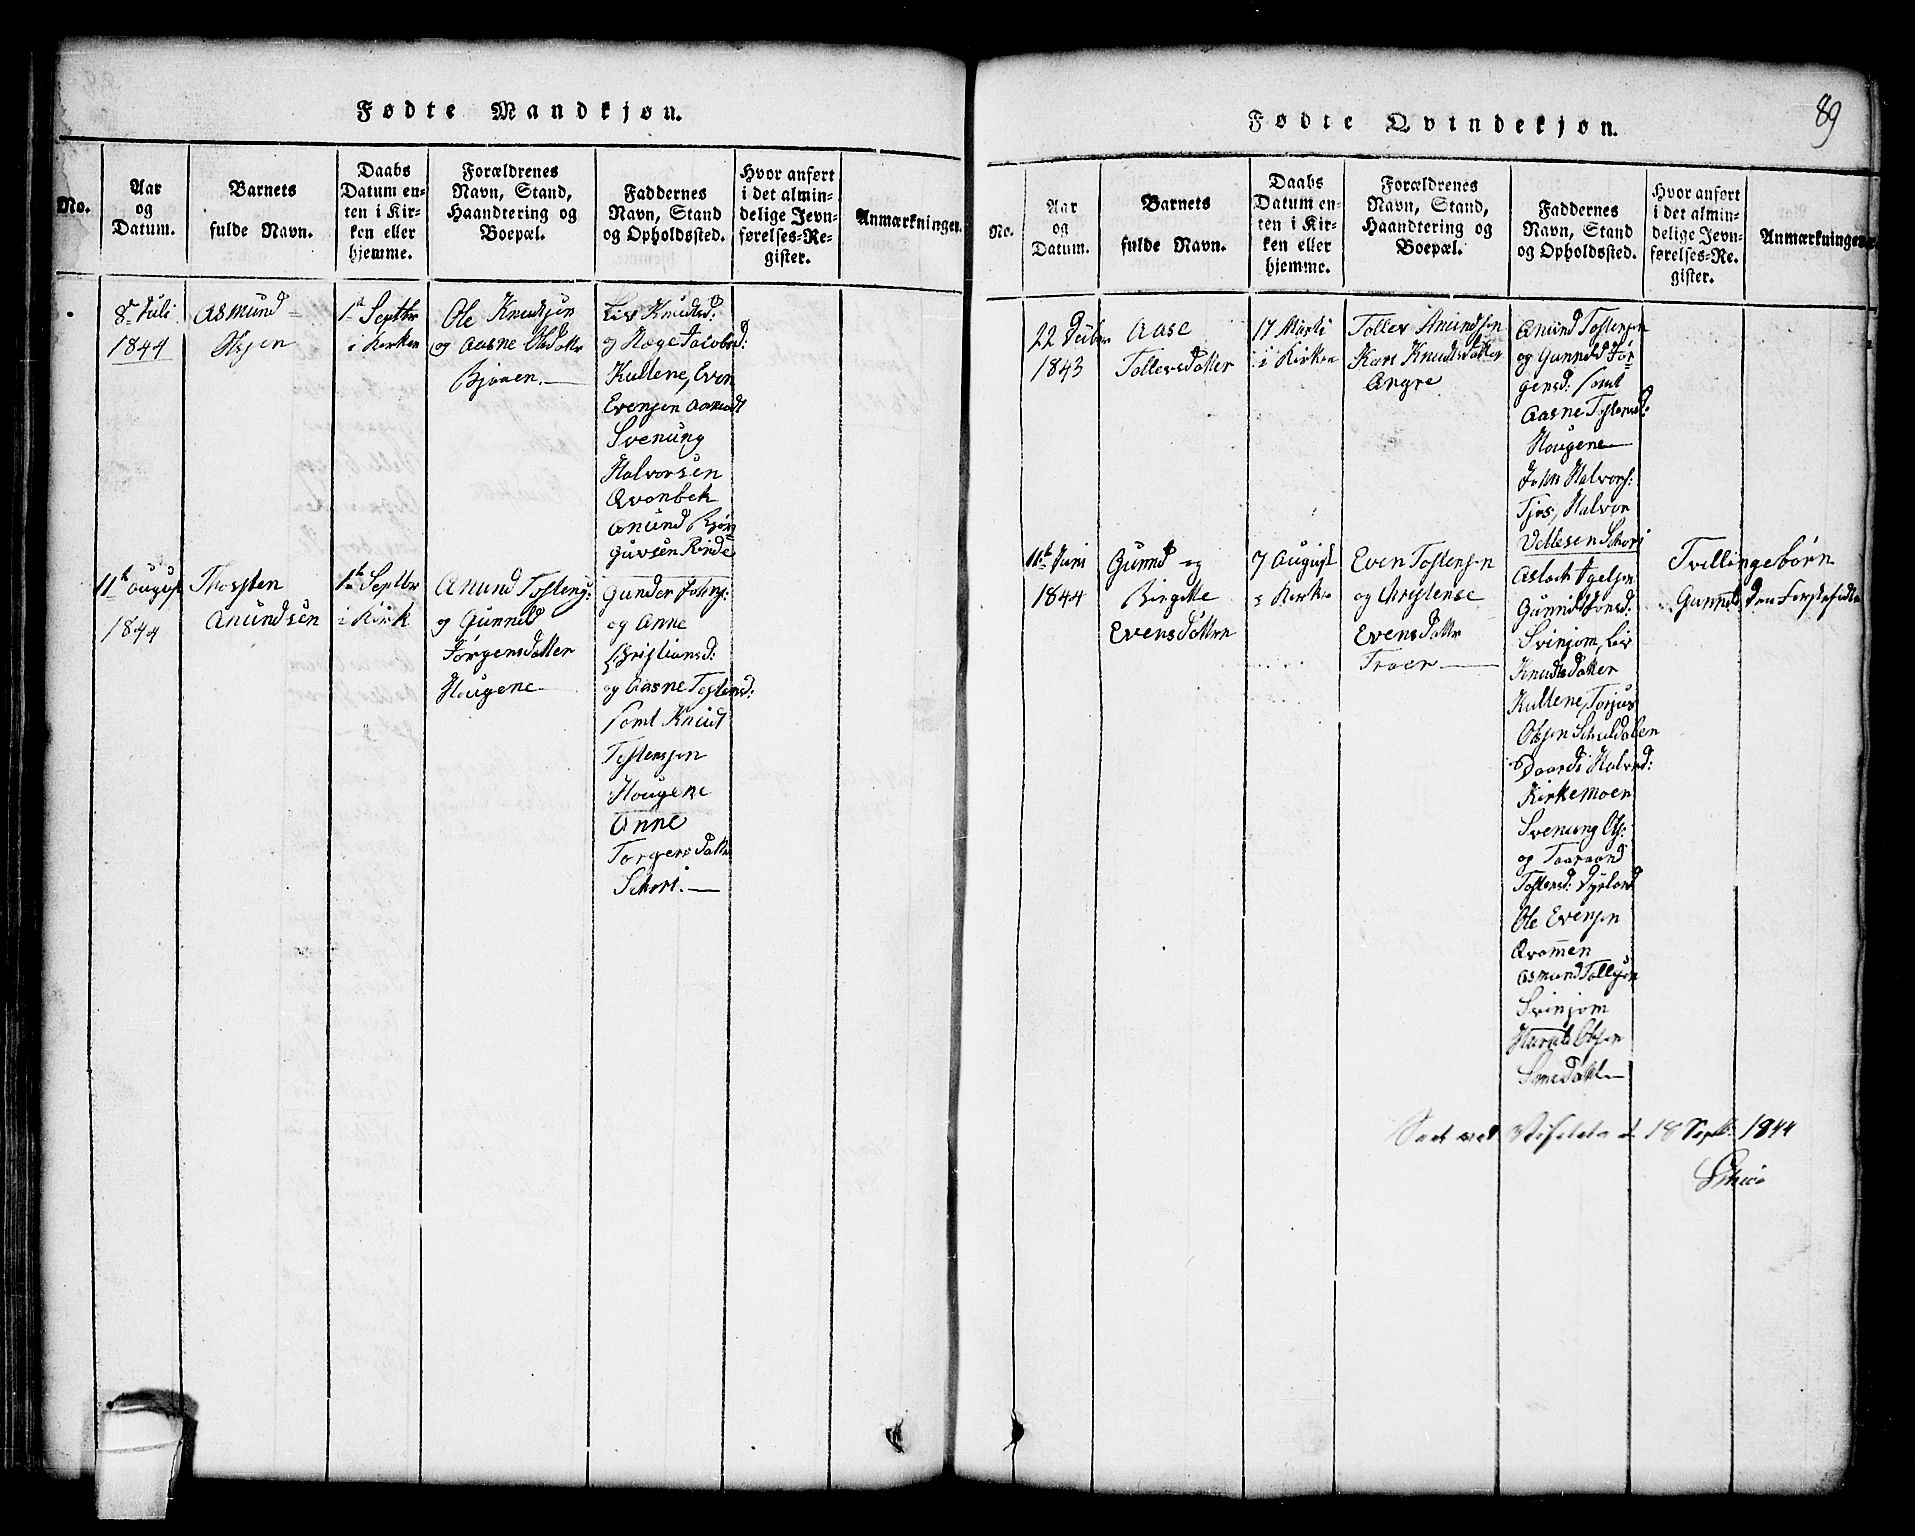 Fødte Mandkjøn.
No.
Aar
og
Datum.
Barnets
fulde Navn.
Daabs
Datum en-
ten i Kir-
ken eller
hjemme.
Forældrenes
Navn, Stand,
Haandtering og
Boepæl.
Faddernes
Navn, Stand
og Opholdssted.
Hvor anført
i det almin-
delige Jevn-
førelses-Re-
gister.
Anmærkninger.
8de Juli
1844
Asmund
Olsen
1te Septbr
i Kirken
Ole Knudsen
og Aasne
Bjaaen.
Liv Knudsd:
og Hæge Jacobsd:
Kultene, Even
Evensen
Svenung
Halvorsen
Qvanbek
Anund Bjøn
guvsen Rinde
11te August
1844
Thorsten
Anundsen
1te Septbr
i Kirk
Anund Tostens:
og Gunnild
Jørgensdatter
Hougene
Gunder Johns:
og Anne
Christiansd:
og Aasne Tostensd:
samt Knud
Tostensen
Hougene
Anne
Torgersdatter
Schori.
Fødte Qvindekjøn.
89
No.
Aar
og
Datum.
Barnets
fulde Navn.
Daabs
Datum en-
ten i Kir-
ken eller
hjemme.
Forældrenes
Navn, Stand,
Haandtering og
Boepæl.
Faddernes
Navn, Stand
og Opholdssted.
Hvor anført
i det almin-
delige Jevn-
førelses-Re-
gister.
Anmærkninger
22
1843
Aase
Tollevsdatter
17 Marti
i Kirken
Tollev Amundsen
Kari Knudsdatter
Angre
Anund Tostensen
og Gunnild Jør-
gensd: samt
Aasne Tostensd:
Hougene
John Halvors:
Tjos, Halvor
Vetlesen Schori
11te Juni
1844
Gunnd og
Birgitte
Evensdatter
7 August
i Kirke
Even Tostensen
og Christense
Evensdatter
Traer
Aslach
Gunnild Jonsd:
Svinjom, Liv
Knudsdatter
Kultene, Torjus
Olsen Schuldalen
Daardi Halvord:
Kirkemoen
Svenung Ols:
og Taaraand
Tostensd: Dyrland
Ole Evensen
Qvammen
Asmund Tollefsen
Svinjom
Harald Olsen
Smedal
Tvillingebørn
Gunnild, den Førstefødte
Seet ved Visitats d. 18 Septb: 1844